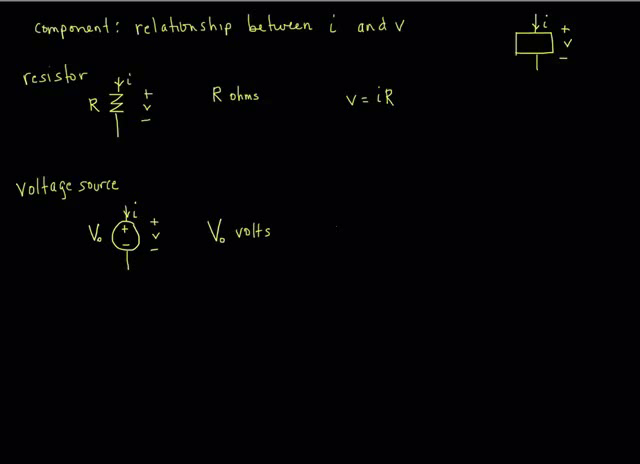 component: relationship between i and v
i
+
v
−
resistor
i
R + v −
R ohms
v = iR
voltage source
i
V₀ + − + v −
V₀ volts